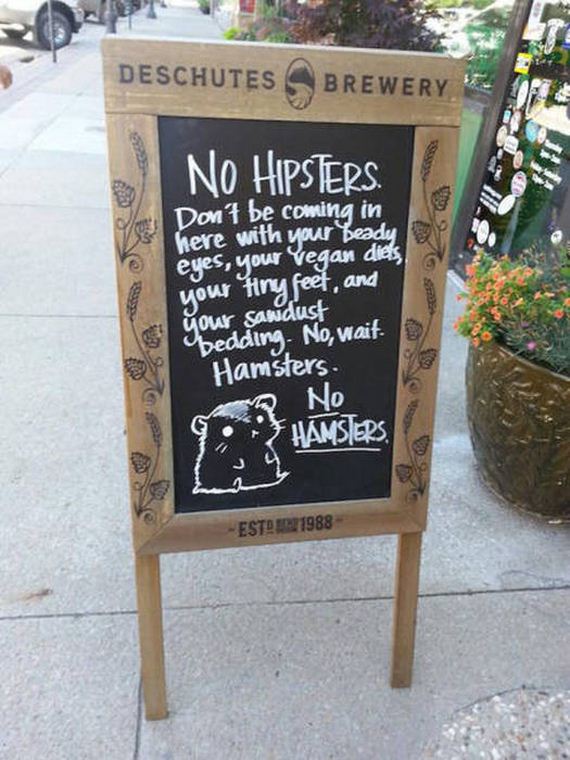 DESCHUTES BREWERY
NO HIPSTERS.
Don't be coming in
here with your beady
eyes, your vegan diets,
your tiny feet, and
your sawdust
bedding. No, wait.
Hamsters.
No
HAMSTERS.
- ESTD 1988 -